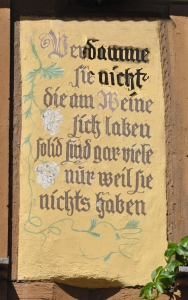 Verdamme
sie nicht
die am Weine
sich laben
solid sind gar viele
nur weil sie
nichts haben